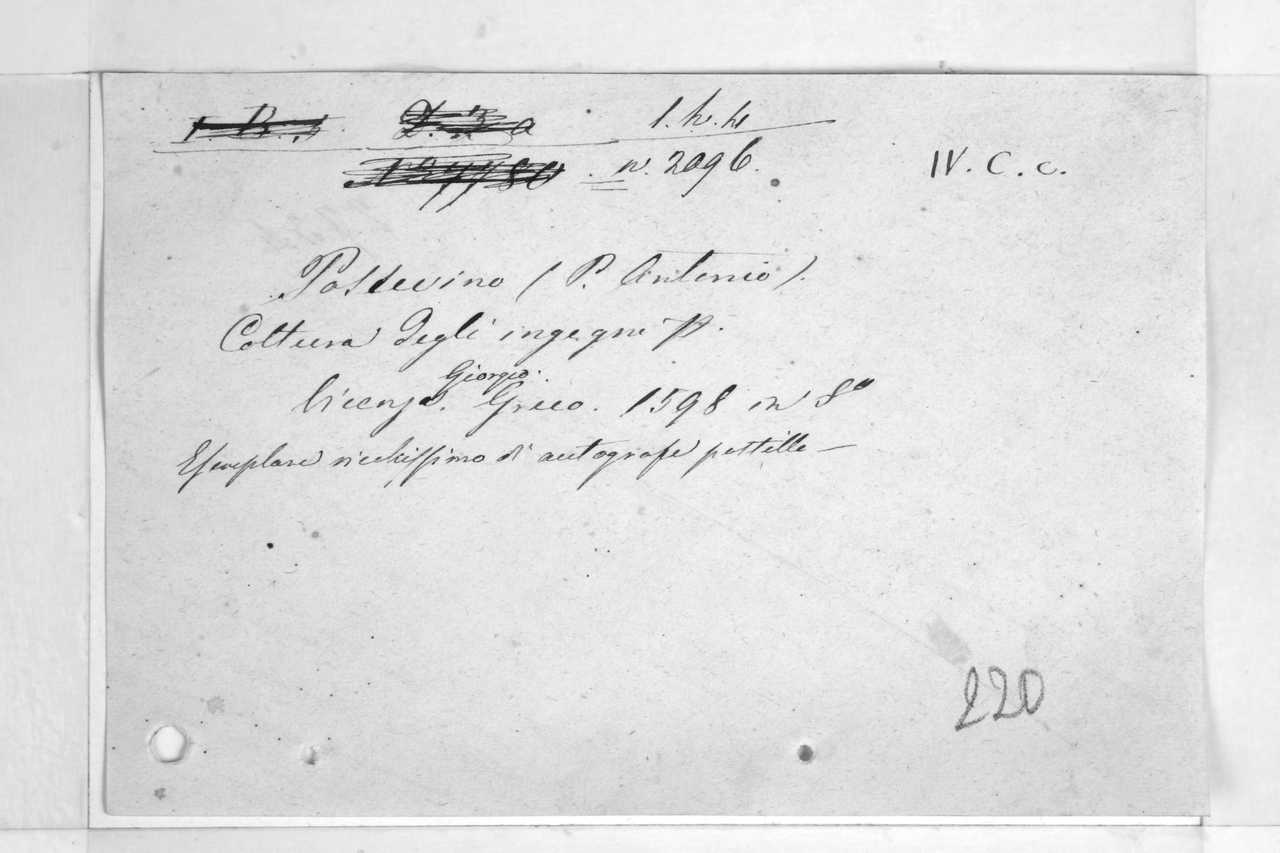 1. h. 4
n. 2096.
IV. C. c.
Possevino (P. Antonio).
Coltura degli ingegni
Giorgio.
Vicenza. Greco. 1598 in 8°
Esemplare ricchissimo di autografe postille —
220